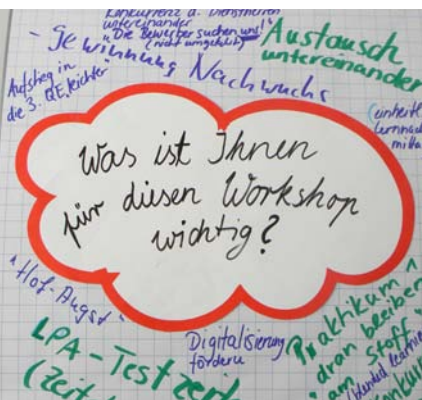 Konkurrenz d. Dienstherren
untereinander
"Die Bewerber suchen uns!"
(nicht umgekehrt)
- Gewinnung Nachwuchs
Austausch
untereinander
Aufstieg in
die 3. QE leichter
(einheitl
Lernnach
mitte
Was ist Ihnen
für diesen Workshop
wichtig?
"Hof-Angst"
LPA-Testzeit
(Zeit
Digitalisierung
fördern
Praktikum
dran bleiben
am Stoff
(blended learnin
onkur